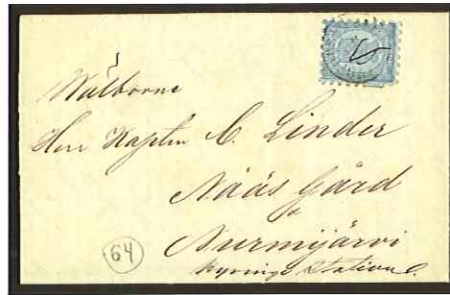 Wälborne
Herr Kapten C. Linder
Nääs Gård
Nurmijärvi
Station
64